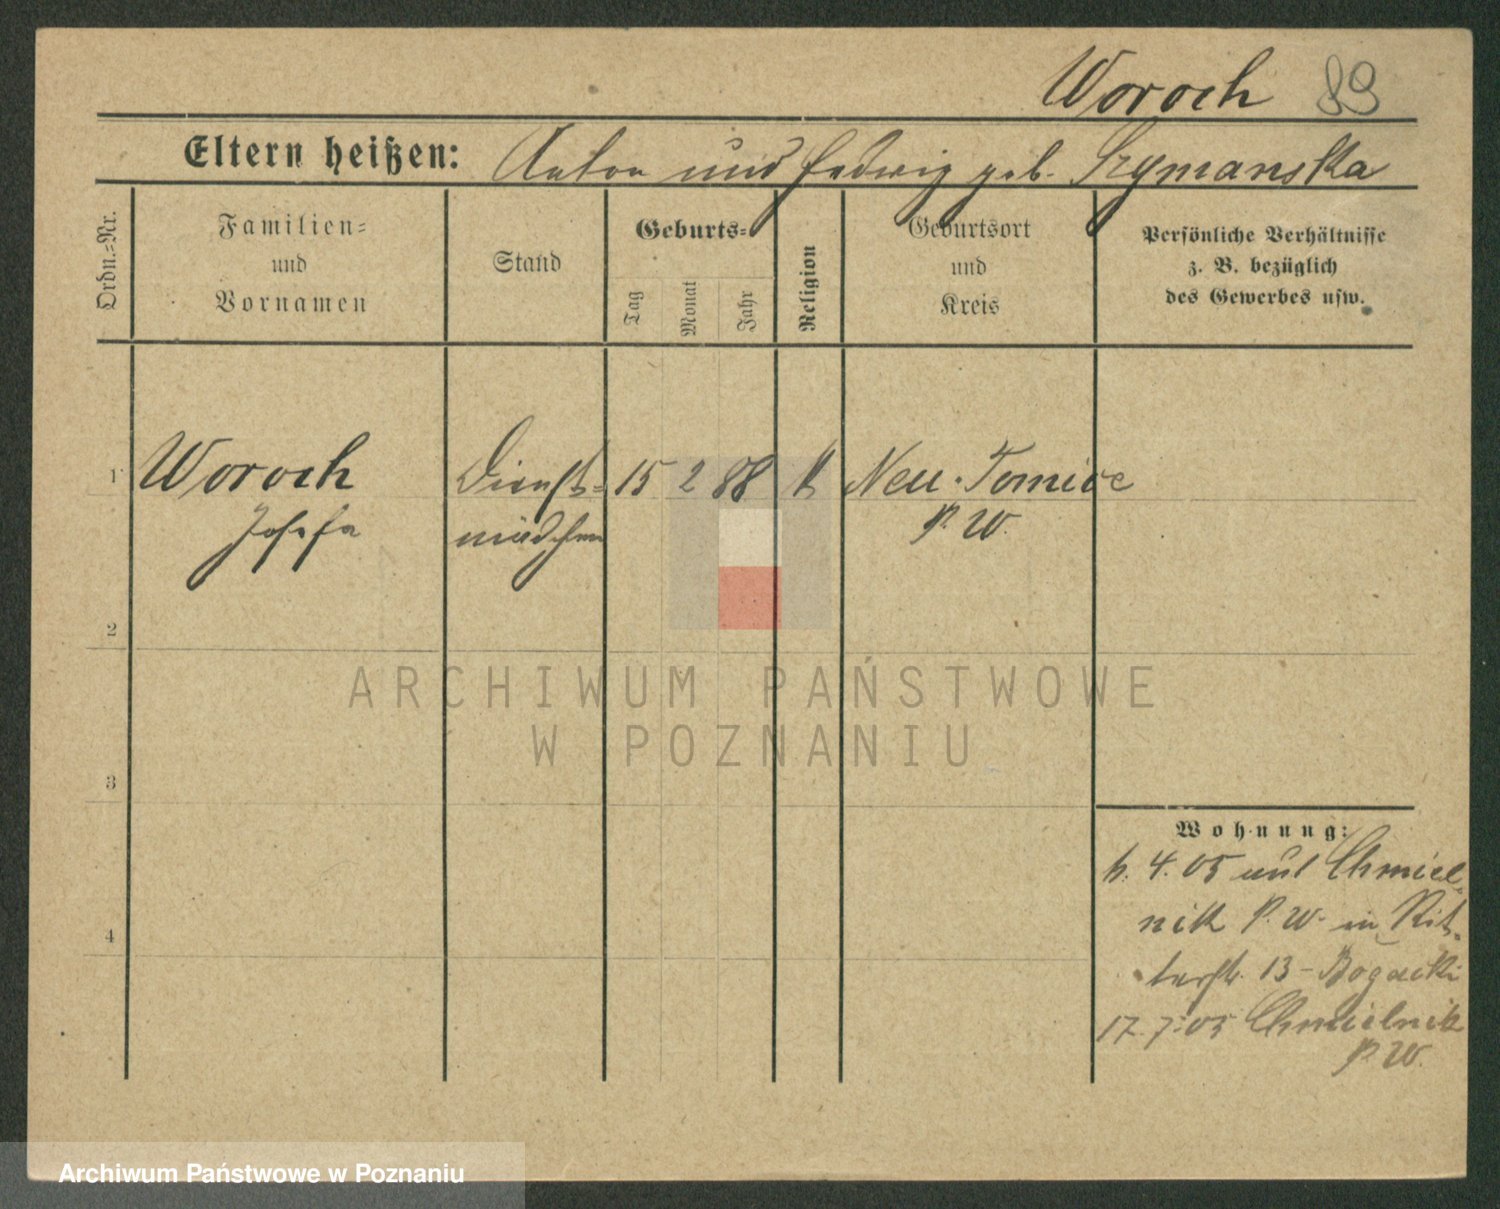 Woroch 89
Eltern heißen: Anton und Hedwig geb. Szymanska
Ordn.=Nr.
Familien=
und
Vornamen
Stand
Geburts=
Tag
Monat
Jahr
Religion
Geburtsort
und
Kreis
Persönliche Verhältnisse
z. B. bezüglich
des Gewerbes usw.
1 Woroch Dienst= 15 2 88 k Neu-Tomice
Josefa mädchen P. W.
2
3
4
ARCHIWUM PAŃSTWOWE
W POZNANIU
Wohnung:
4. 05 aus Chmiel-
nik P. W. in Rit-
terstr. 13 - Bogacki
17. 7. 05 Chmielnik
P. W.
Archiwum Państwowe w Poznaniu